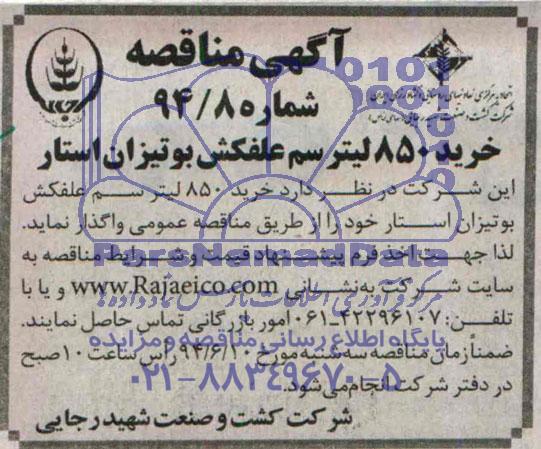 آگهی مناقصه
شماره ۹۴/۸
خرید ۸۵۰ لیتر سم علفکش بوتیزان استار
این شرکت در نظر دارد خرید ۸۵۰ لیتر سم علفکش
بوتیزان استار خود را از طریق مناقصه عمومی واگذار نماید.
لذا جهت اخذ فرم پیشنهاد قیمت و شرایط مناقصه به
سایت شرکت به نشانی www.Rajaeico.com و یا با
تلفن: ۴۲۲۹۶۱۰۷-۰۶۱ امور بازرگانی تماس حاصل نمایند.
ضمناً زمان مناقصه سه شنبه مورخ ۹۴/۶/۱۰ راس ساعت ۱۰ صبح
در دفتر شرکت انجام می شود.
شرکت کشت و صنعت شهید رجایی
ParsNamadData
مرکز فرآوری اطلاعات پارس نماد داده ها
پایگاه اطلاع رسانی مناقصه و مزایده
۰۲۱-۸۸۳۴۹۶۷۰-۵